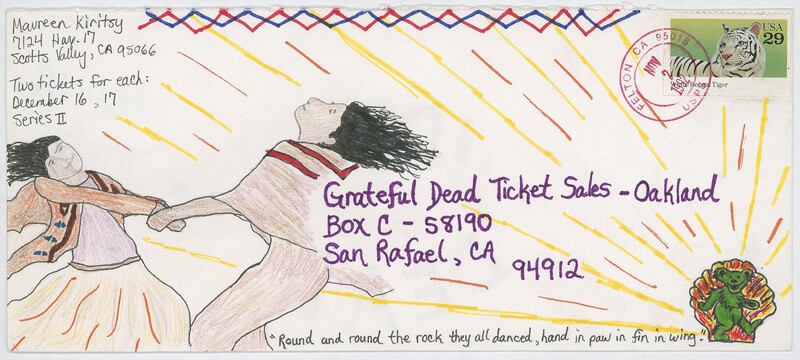 Maureen Kiritsy
7124 Hwy. 17
Scotts Valley, CA 95066
Two tickets for each:
December 16, 17
Series II
USA
29
White Bengal Tiger
FELTON CA 95018
NOV
2
USPS
Grateful Dead Ticket Sales - Oakland
Box C - 58190
San Rafael, CA
94912
"Round and round the rock they all danced, hand in paw in fin in wing."